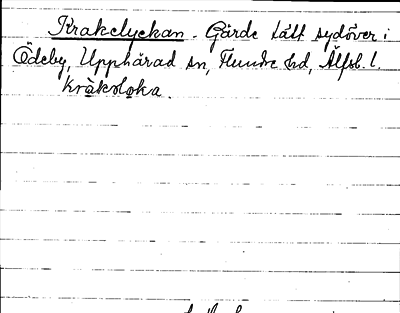 Krakelyckan. Gärde tätt sydöver i
Ödeby, Upphärad sn, Flundre hd, Älfsb. l.
Kråksloka.